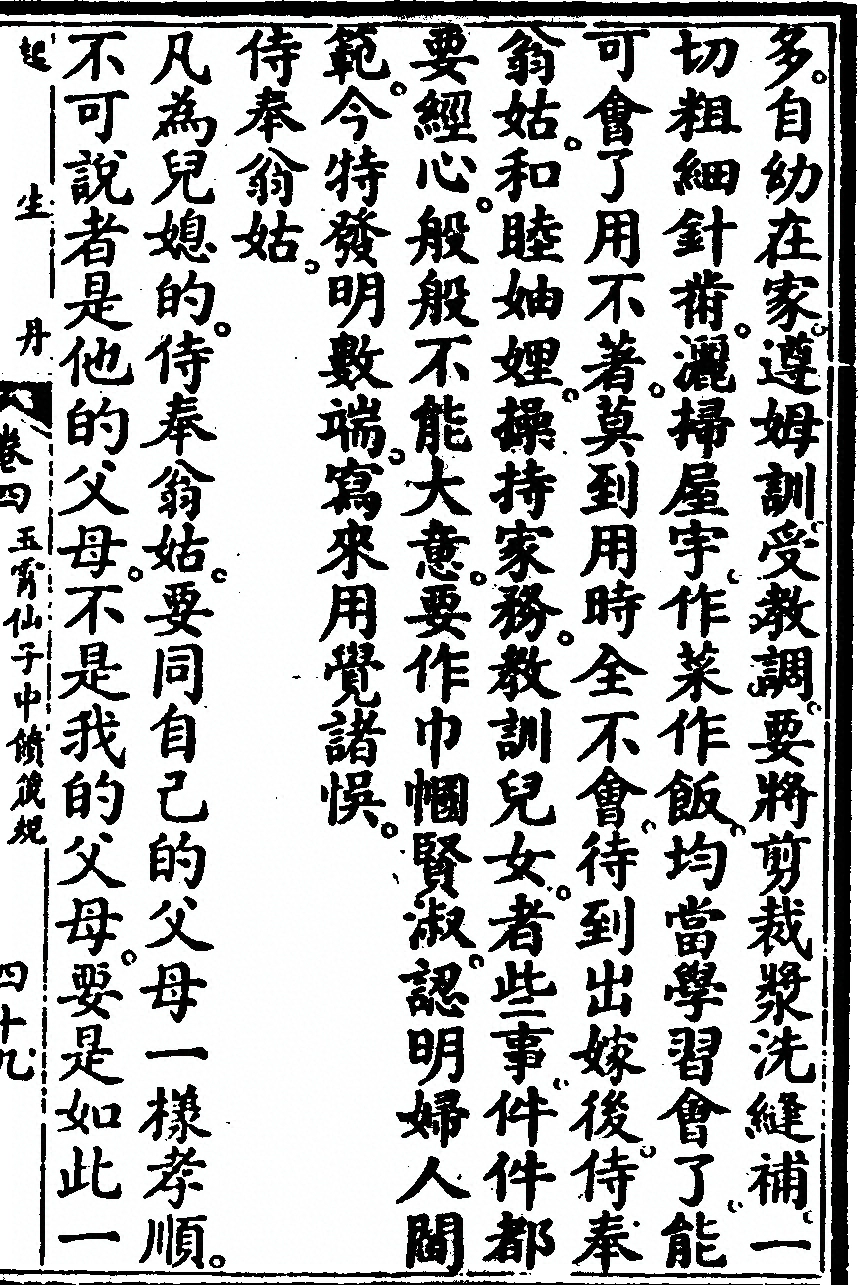 多。自幼在家。遵姆訓。受教調。要將剪裁漿洗縫補。一
切粗細針黹。灑掃屋宇。作菜作飯。均當學習會了。能
可會了用不著。莫到用時全不會。待到出嫁後。侍奉
翁姑。和睦妯娌。操持家務。教訓兒女。者些事。件件都
要經心。般般不能大意。要作巾幗賢淑。認明婦人閫
範。今特發明數端。寫來用覺諸悞。
侍奉翁姑。
凡為兒媳的。侍奉翁姑。要同自己的父母一樣孝順。
不可說者是他的父母。不是我的父母。要是如此一
起生丹 卷四 玉霄仙子中饋箴規 四十九